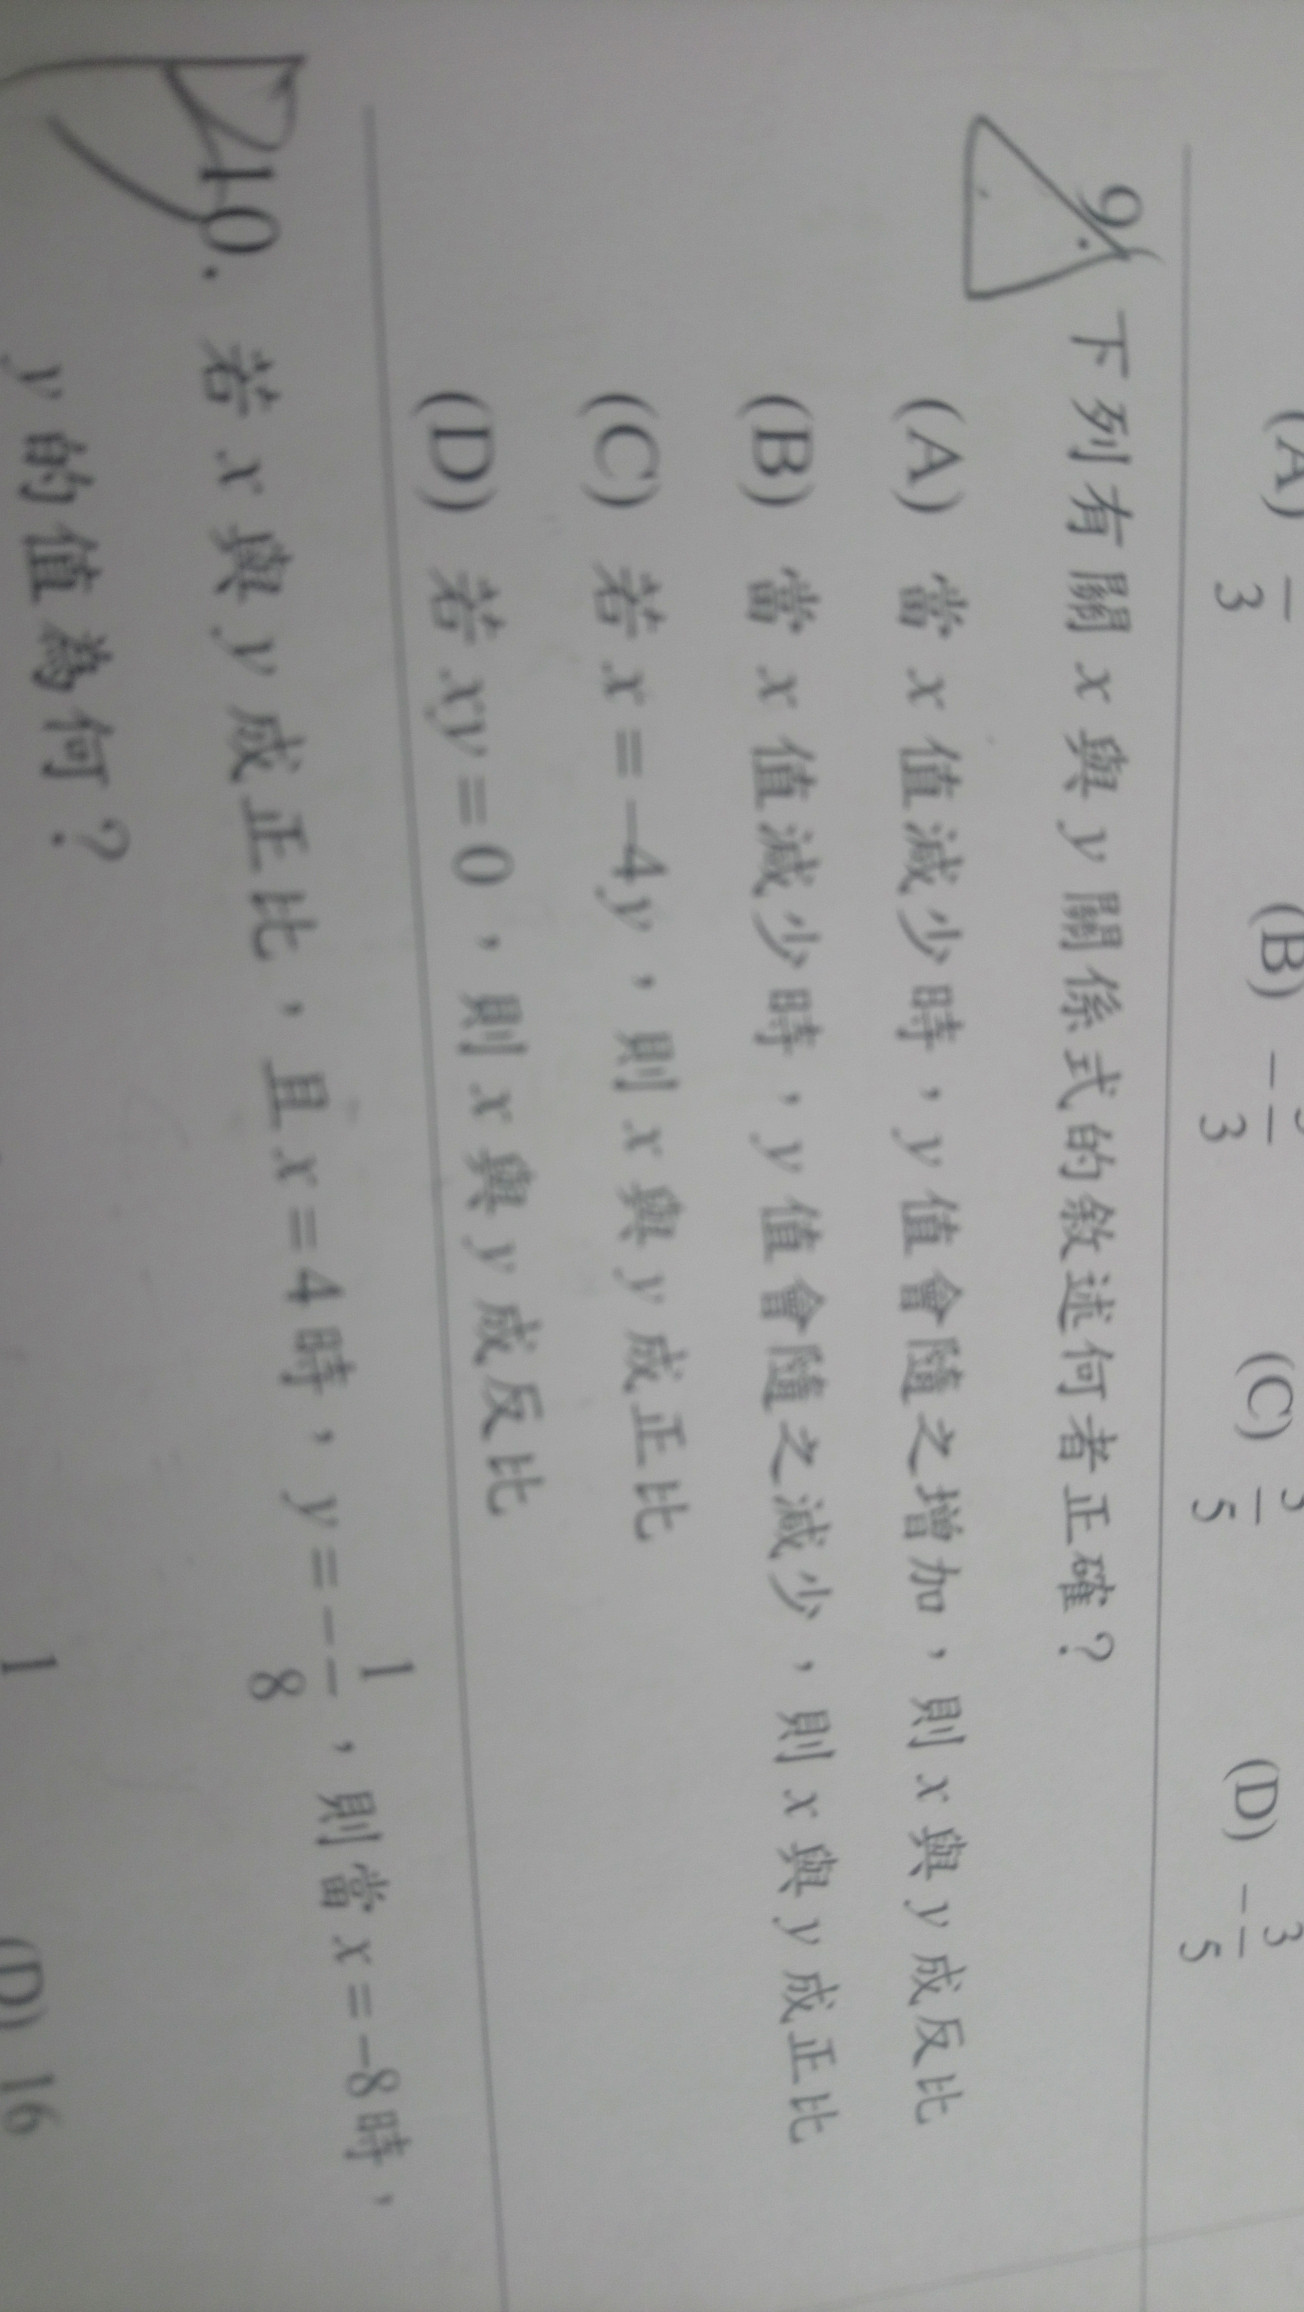 (A) 3 (B) − 3 (C) 5 (D) −3/5
9. 下列有關 x 與 y 關係式的敘述何者正確？
(A) 當 x 值減少時，y 值會隨之增加，則 x 與 y 成反比
(B) 當 x 值減少時，y 值會隨之減少，則 x 與 y 成正比
(C) 若 x＝−4y，則 x 與 y 成正比
(D) 若 xy＝0，則 x 與 y 成反比
10. 若 x 與 y 成正比，且 x＝4 時，y＝−1/8，則當 x＝−8 時，
y 的值為何？
1 (D) 16